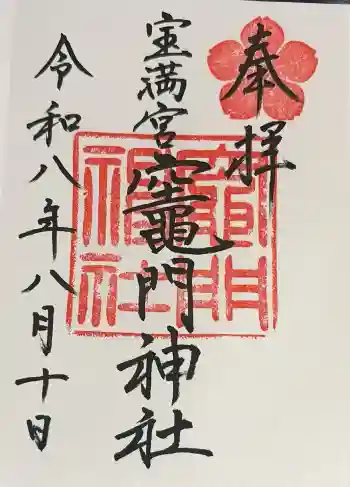 奉拝
宝満宮
竈門神社
令和八年八月十日
竈門
神社